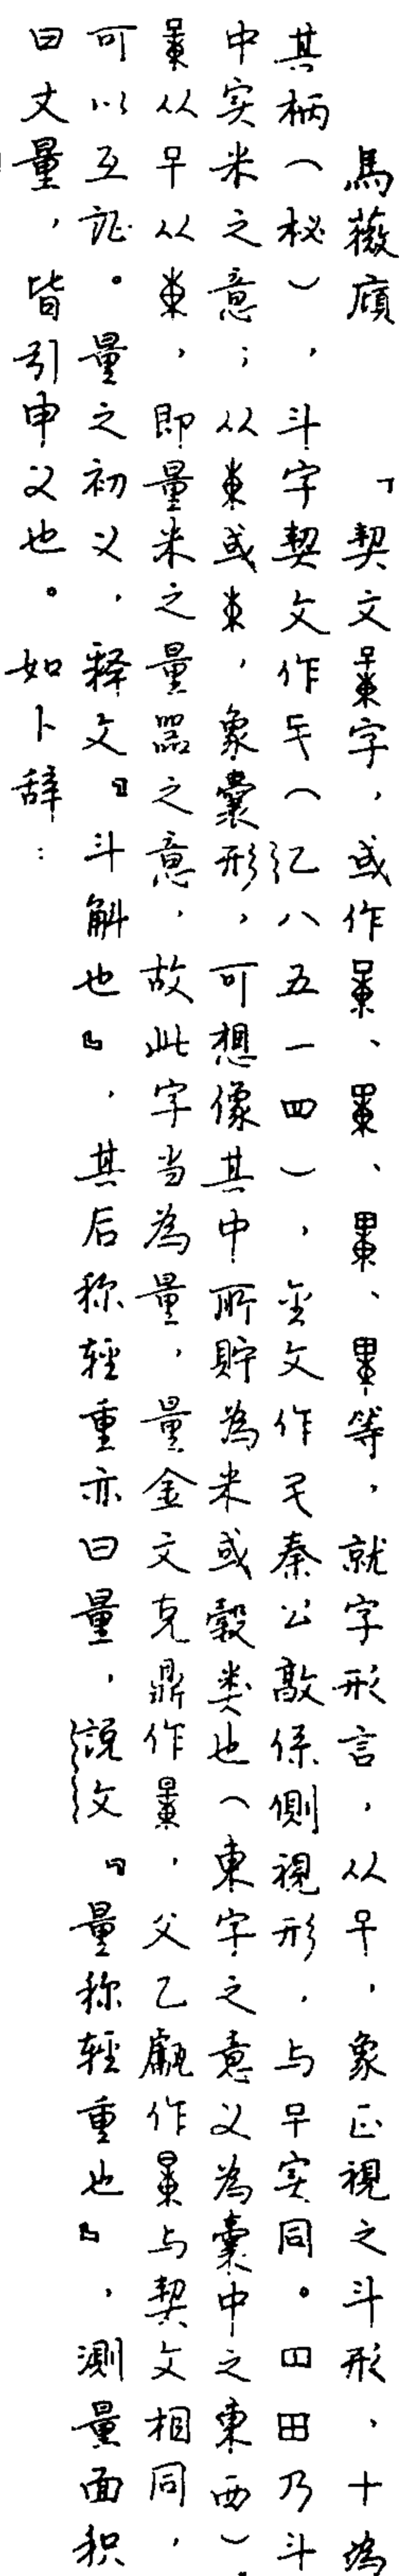 馬薇廎　「契文字，或作、、、等，就字形言，从早，象正視之斗形，十為
其柄（柲），斗字契文作（乙八五一四），金文作秦公敦係側視形，与早实同。田乃斗
中实米之意；从東或東，象囊形，可想像其中所貯為米或穀类也（東字之意义為囊中之東西）。
从早从東，即量米之量器之意，故此字当為量，量金文克鼎作，父乙甗作与契文相同，
可以互証。量之初义，释文『斗斛也』，其后称輕重亦曰量，說文『量称輕重也』，測量面积
曰丈量，皆引申义也。如卜辞：